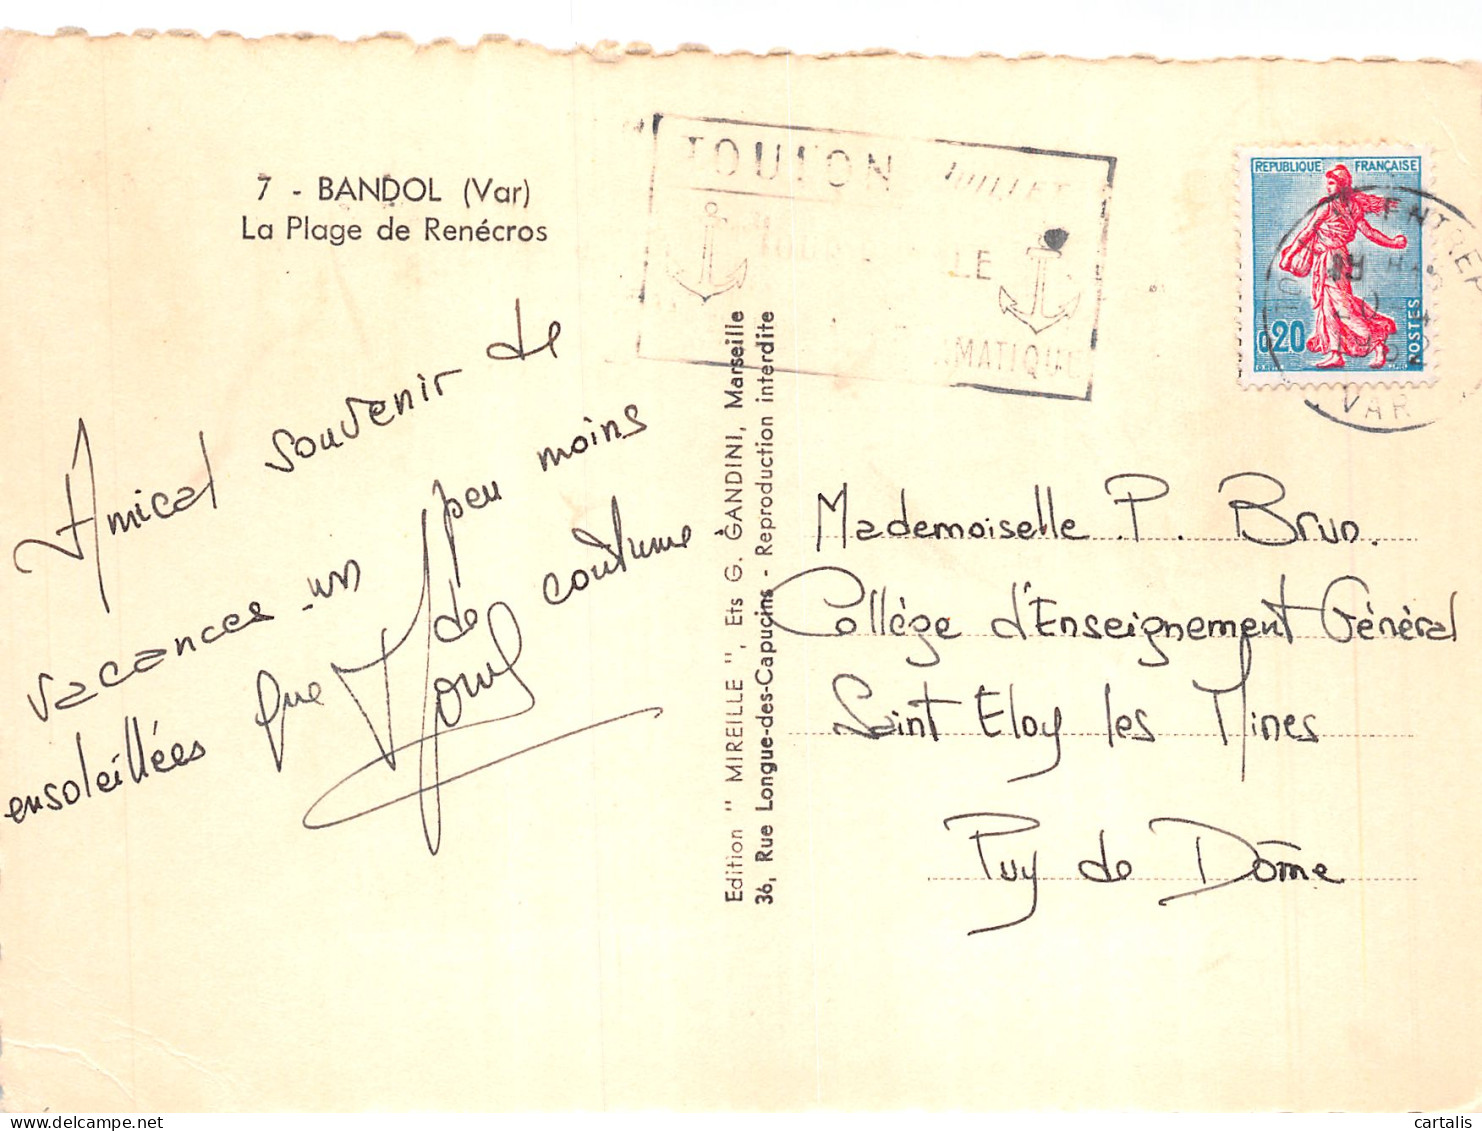 7 - BANDOL (Var)
La Plage de Renécros
TOULON JUILLET
LE
MATIQUE
REPUBLIQUE FRANÇAISE
0,20
POSTES
VAR
Amical souvenir de
vacances un peu moins
ensoleillées que de coutume
Edition " MIREILLE ", Ets G. GANDINI, Marseille
36, Rue Longue-des-Capucins - Reproduction interdite
Mademoiselle P. Brun.
Collège d'Enseignement Général
Saint Eloy les Mines
Puy de Dôme
cartalis